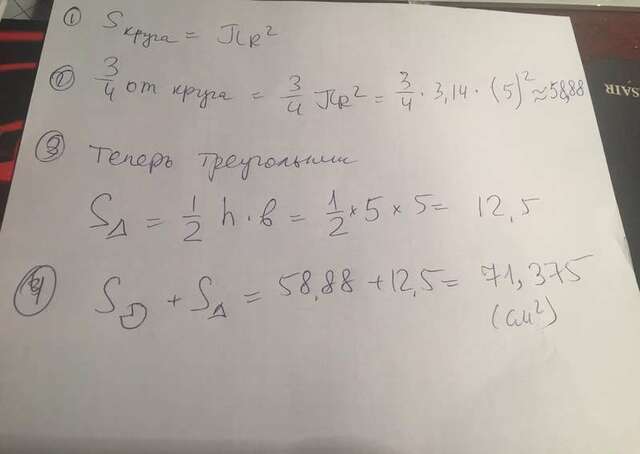 ① S круга = πR²
② 3/4 от круга = 3/4 πR² = 3/4 · 3,14 · (5)² ≈ 58,88
③ Теперь треугольник
S△ = 1/2 h · b = 1/2 × 5 × 5 = 12,5
④ S + S△ = 58,88 + 12,5 = 71,375
(см²)
SAIR